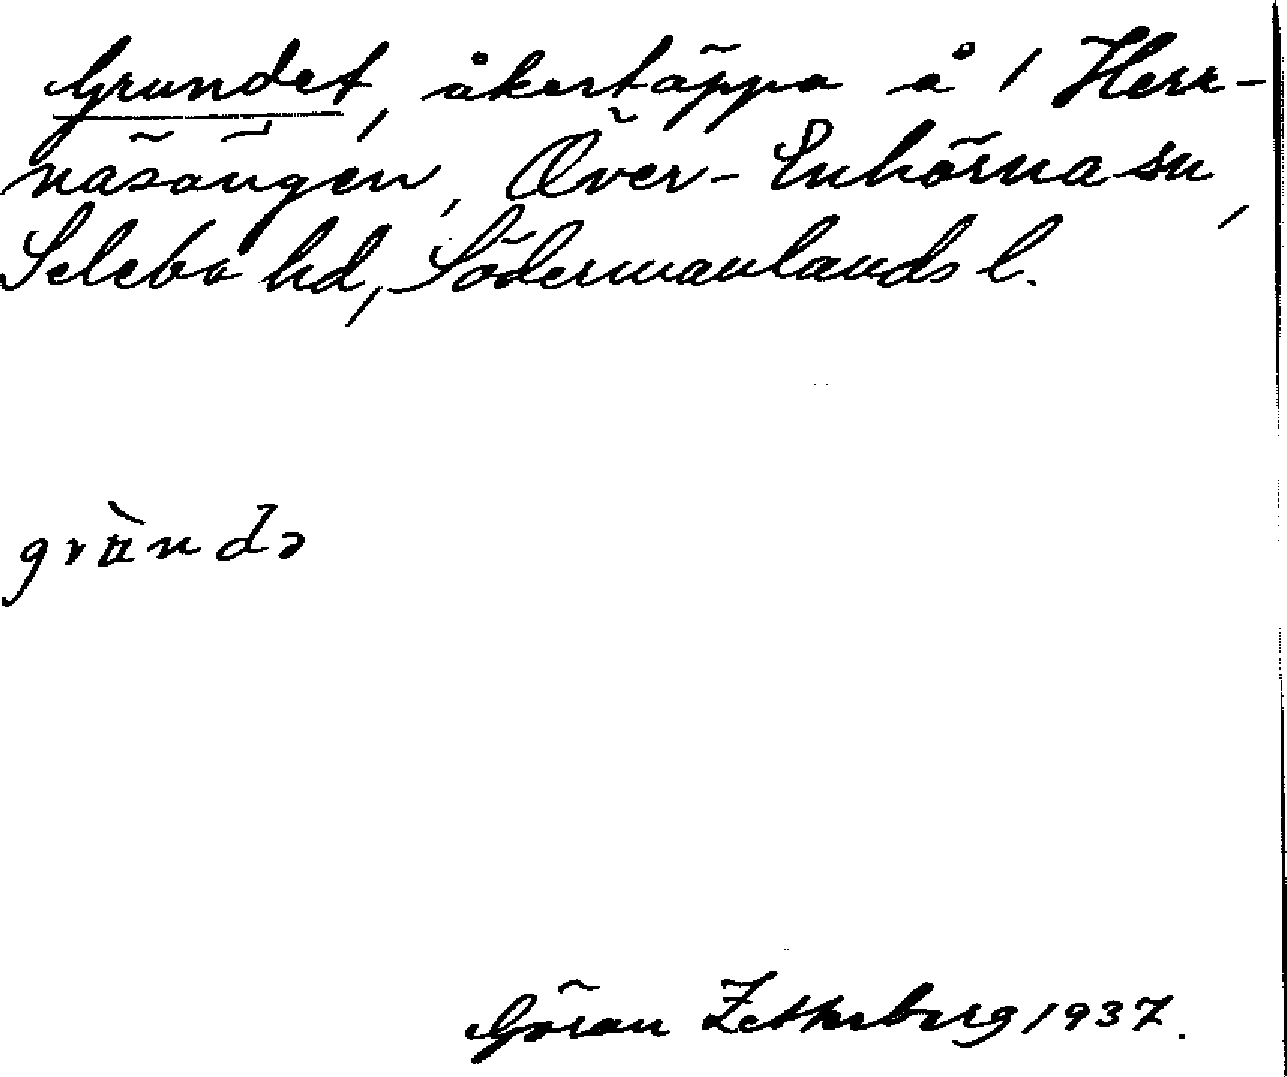 Grundet, åkertäppa å 1 Herr-
näsängen, Över-Enhörna sn,
Selebo hd, Södermanlands l.
Göran Zetterberg 1937.